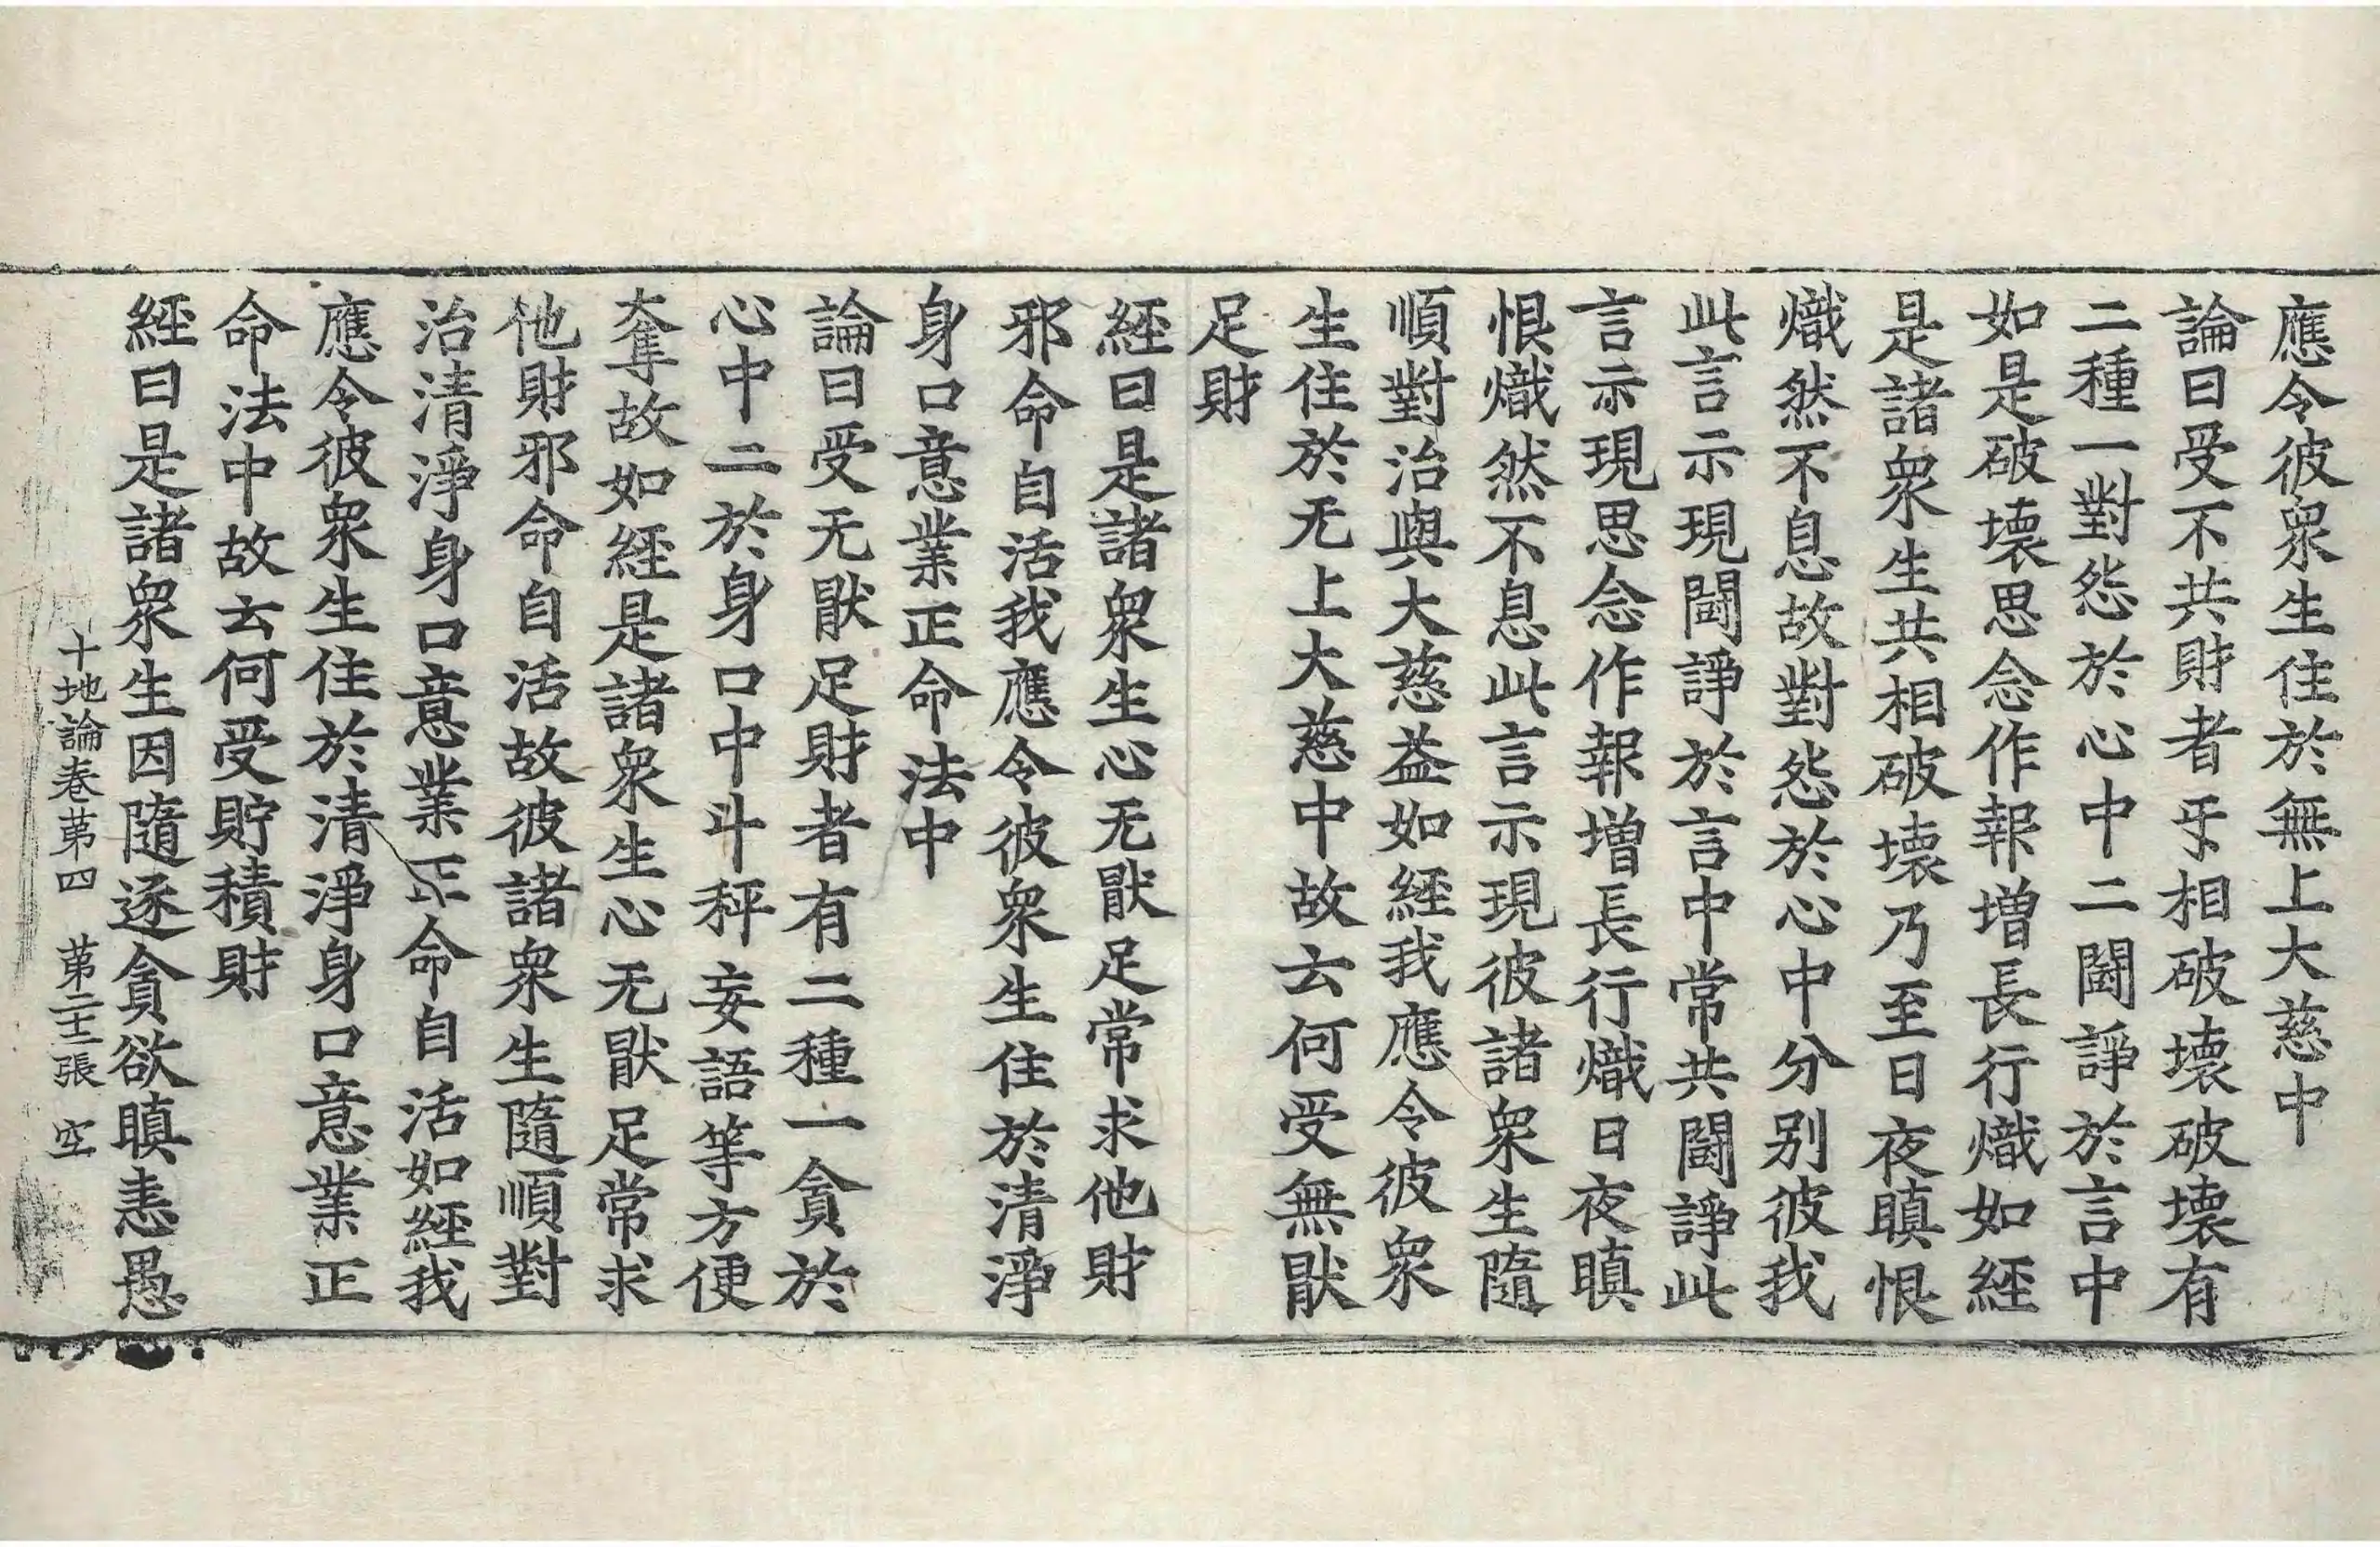 應令彼衆生住於無上大慈中
論曰受不共財者乎相破壞破壞有
二種一對怨於心中二鬪諍於言中
如是破壞思念作報增長行熾如經
是諸衆生共相破壞乃至日夜瞋恨
熾然不息故對怨於心中分別彼我
此言示現鬪諍於言中常共鬪諍此
言示現思念作報增長行熾日夜瞋
恨熾然不息此言示現彼諸衆生隨
順對治與大慈益如經我應令彼衆
生住於无上大慈中故云何受無猒
足財
經曰是諸衆生心无猒足常求他財
邪命自活我應令彼衆生住於清淨
身口意業正命法中
論曰受无猒足財者有二種一貪於
心中二於身口中斗秤妄語等方便
奪故如經是諸衆生心无猒足常求
他財邪命自活故彼諸衆生隨順對
治清淨身口意業正命自活如經我
應令彼衆生住於清淨身口意業正
命法中故云何受貯積財
經曰是諸衆生因隨逐貪欲瞋恚愚
十地論卷第四 第二十三張 空